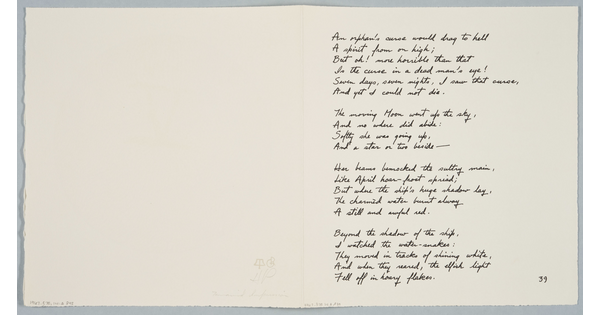 An orphan's curse would drag to hell
A spirit from on high;
But oh! more horrible than that
Is the curse in a dead man's eye!
Seven days, seven nights, I saw that curse,
And yet I could not die.
The moving Moon went up the sky,
And no where did abide:
Softly she was going up,
And a star or two beside—
Her beams bemocked the sultry main,
Like April hoar-frost spread;
But where the ship's huge shadow lay,
The charmed water burnt alway
A still and awful red.
Beyond the shadow of the ship,
I watched the water-snakes:
They moved in tracks of shining white,
And when they reared, the elfish light
Fell off in hoary flakes.
39